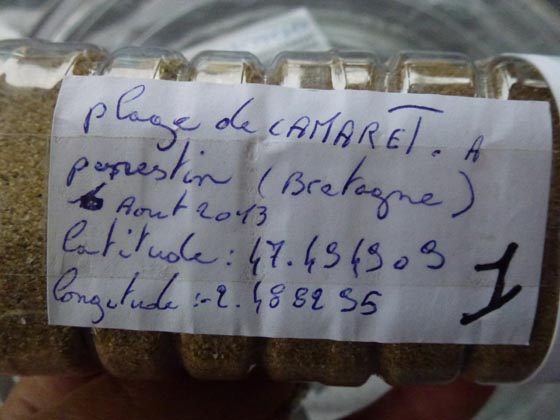 plage de CAMARET. A
penestin (Bretagne)
6 Aout 2013
latitude: 47.494909
longitude:-2.488295
1